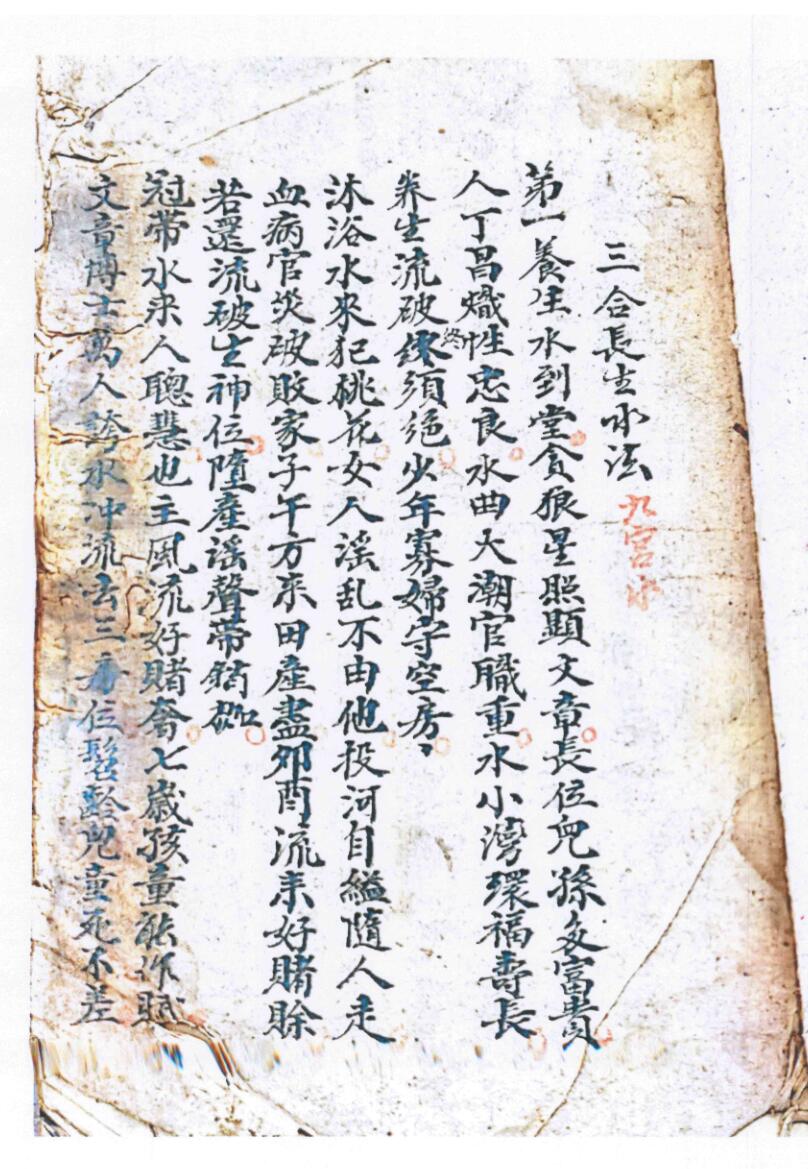 三合長生水法 九宮水
第一養生水到堂貪狼星照顯文章長位兒孫多富貴
人丁昌熾性忠良水曲大潮官職重水小灣環福壽長
养生流破終須绝少年寡婦守空房
沐浴水來犯桃花女人谣乱不由他投河自縊隨人走
血病官災破敗家子午方來田產盡夘酉流来好賭賒
若還流破生神位墮產谣聲帶鎖枷
冠带水来人聰慧也主風流好賭奢七歲孩童能作賦
文章博士萬人誇水冲流去三房位髫齡兒童死不差